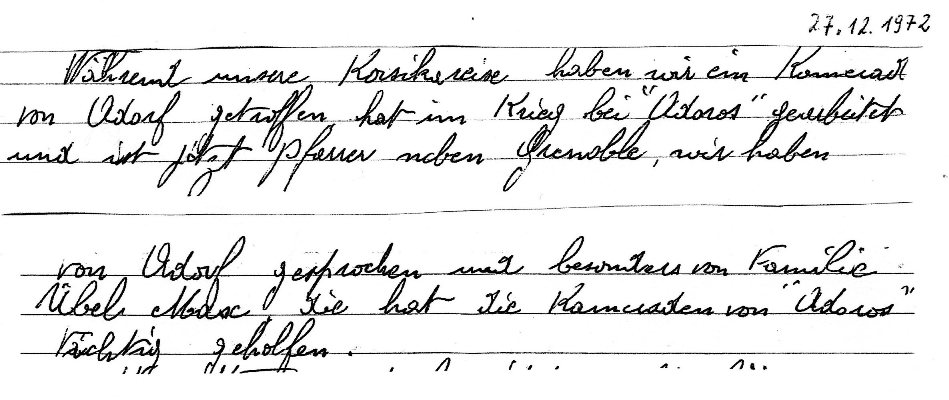 27.12.1972
Während unsere Korsikareise haben wir ein Kamerad
von Adorf getroffen hat im Krieg bei "Adoros" gearbeitet
und ist jetzt Pfarrer neben Grenoble, wir haben
von Adorf gesprochen und besonders von Familie
Übel Max, die hat die Kameraden von "Adoros"
tüchtig geholfen.